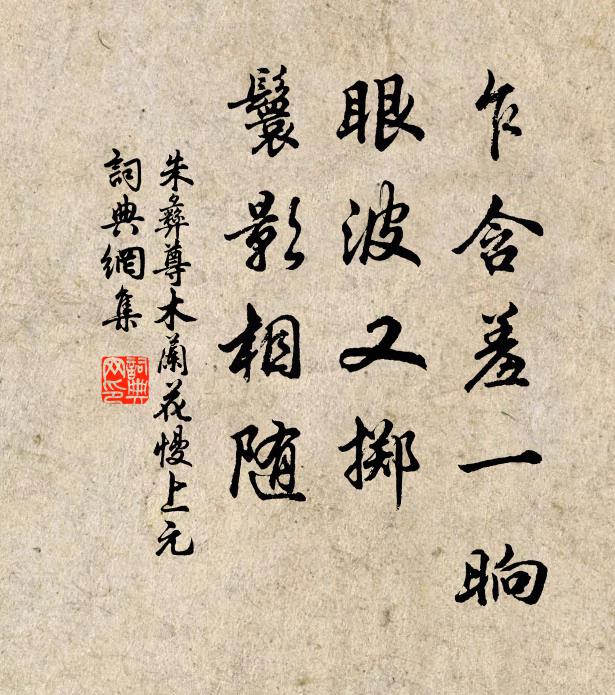 乍含羞一晌
眼波又掷
鬟影相随
朱彝尊木蘭花慢上元
詞典網集
詞典
网印